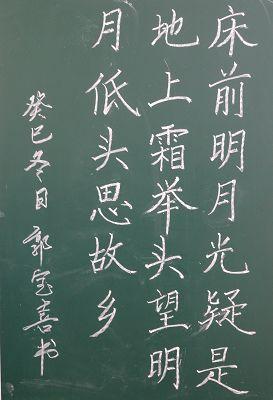 床前明月光疑是
地上霜举头望明
月低头思故乡
癸巳冬日郭宝喜书